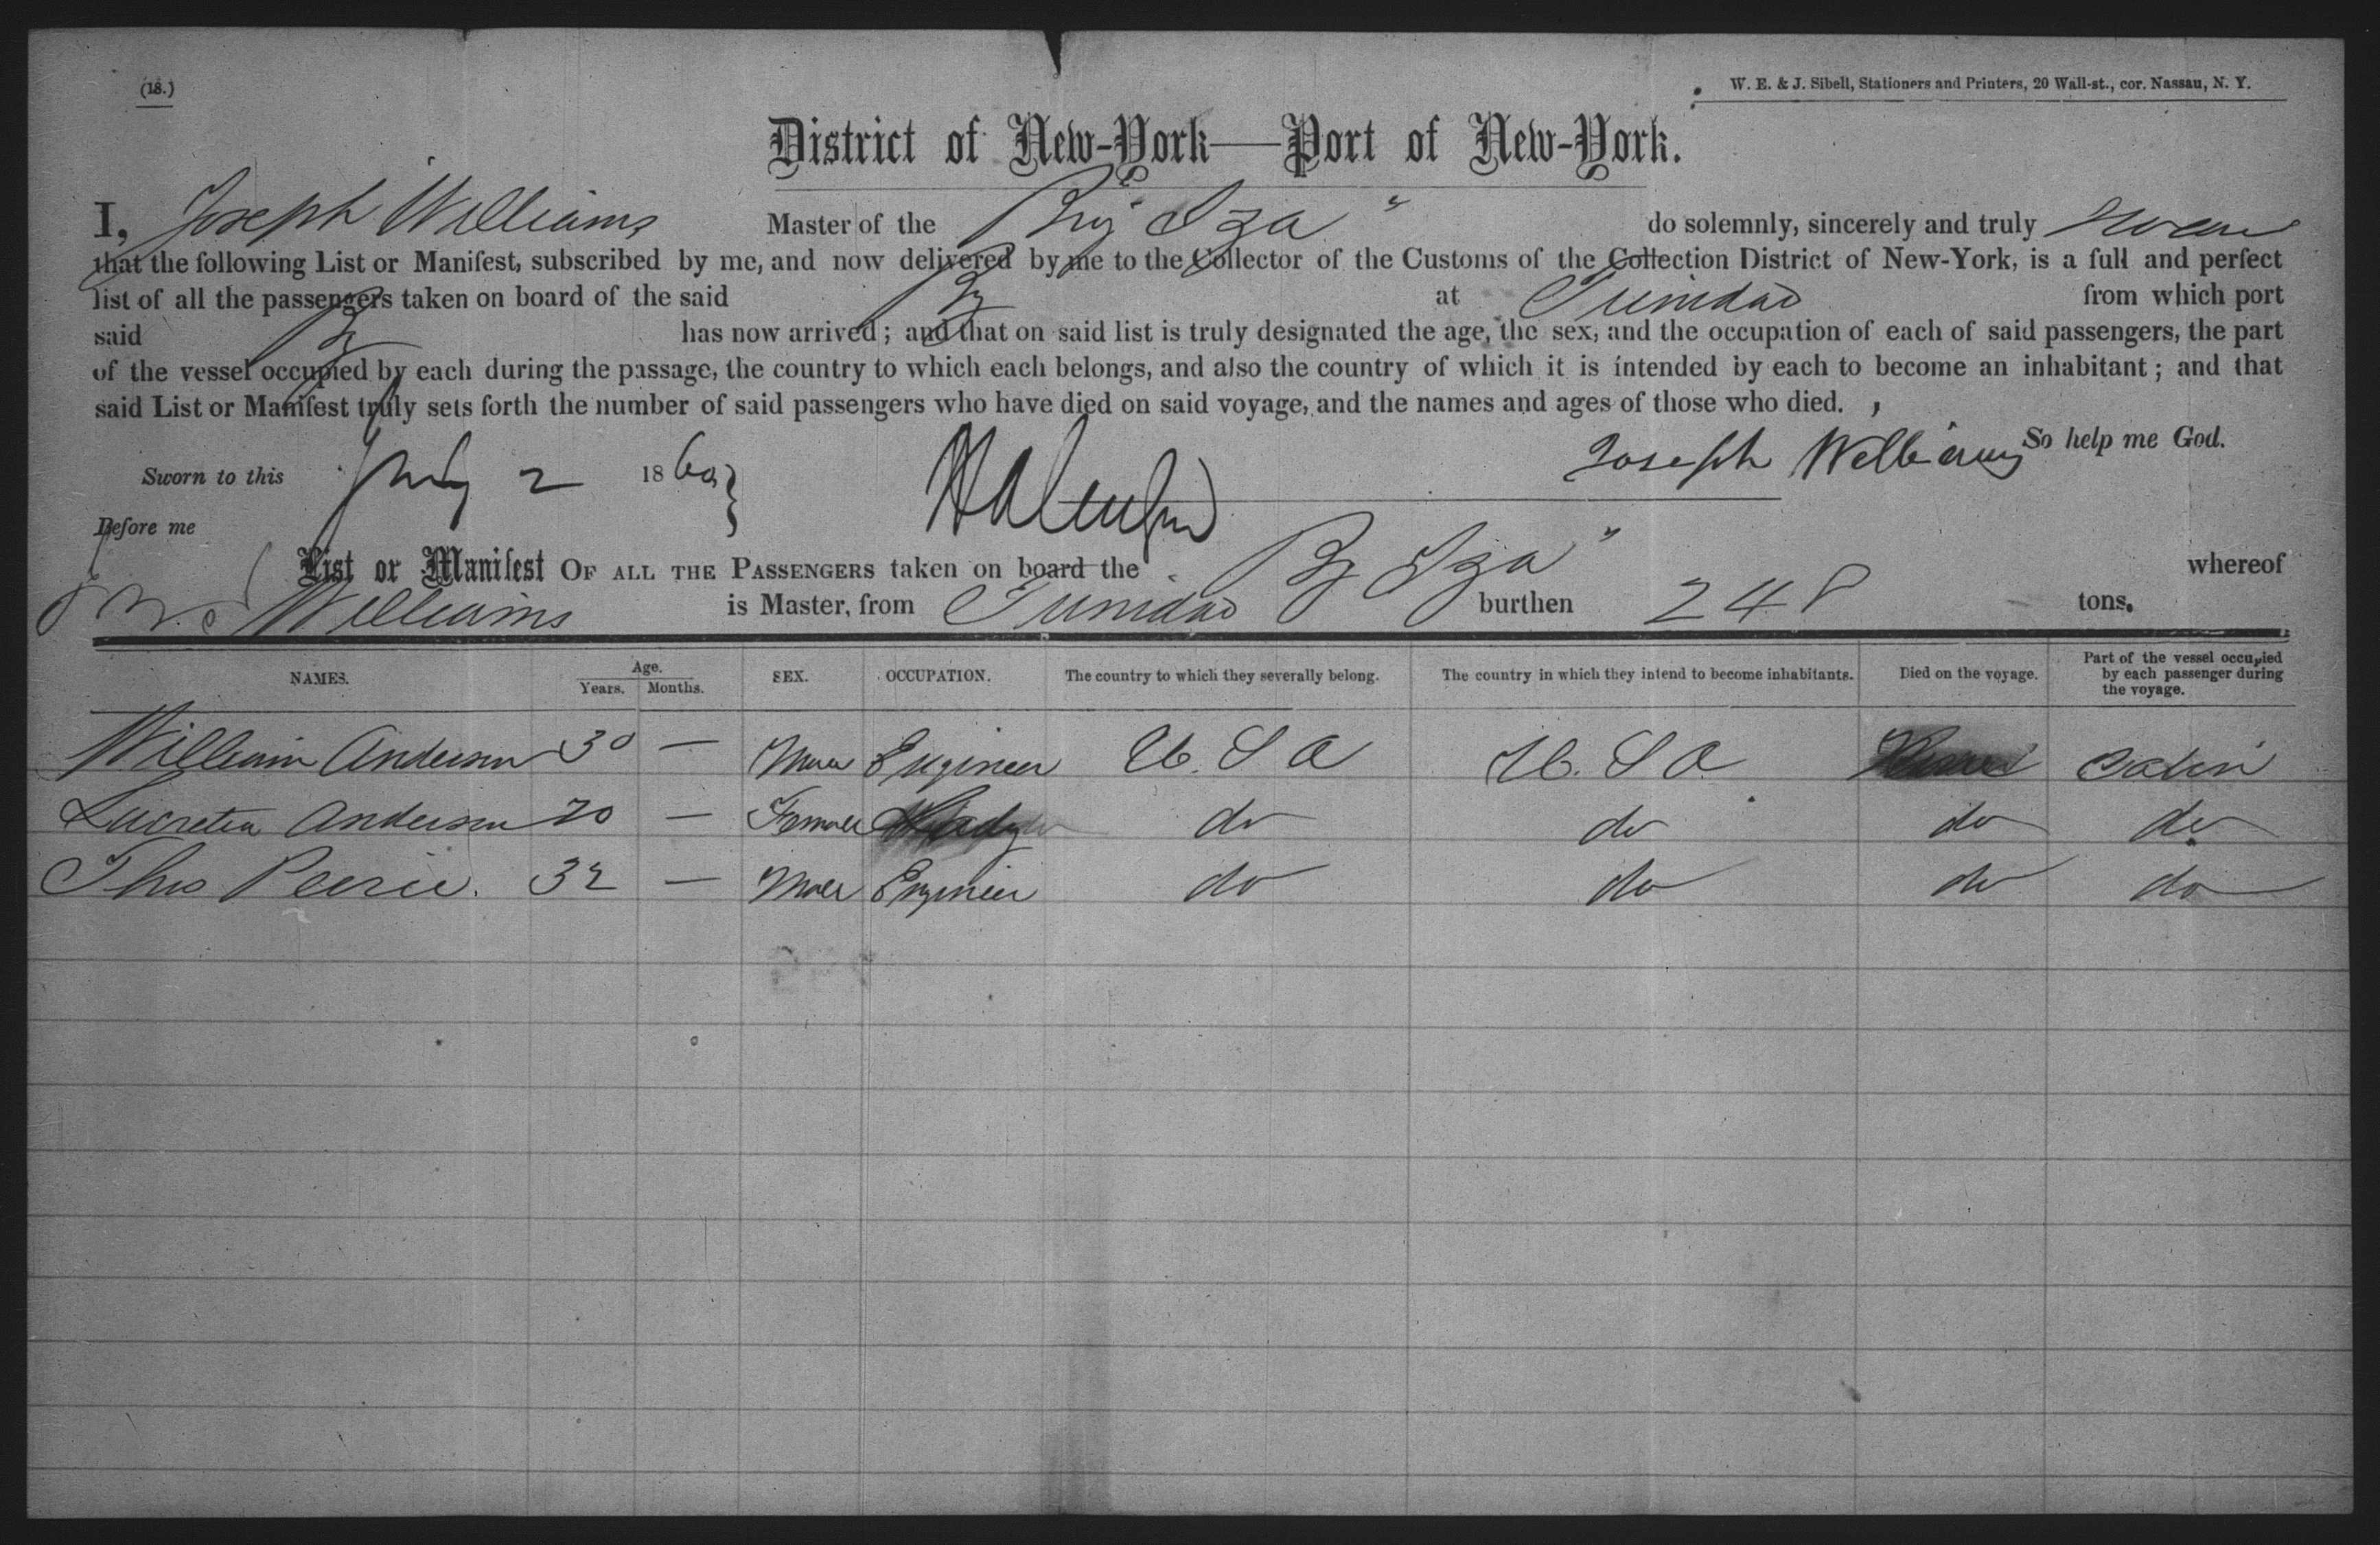 (18.)
W. E. & J. Sibell, Stationers and Printers, 20 Wall-st., cor. Nassau, N. Y.
District of New-York—Port of New-York.
I, Joseph Williams Master of the Brig Iza" do solemnly, sincerely and truly swear
that the following List or Manifest, subscribed by me, and now delivered by me to the Collector of the Customs of the Collection District of New-York, is a full and perfect
list of all the passengers taken on board of the said Bg at Trinidad from which port
said Bg has now arrived; and that on said list is truly designated the age, the sex, and the occupation of each of said passengers, the part
of the vessel occupied by each during the passage, the country to which each belongs, and also the country of which it is intended by each to become an inhabitant; and that
said List or Manifest truly sets forth the number of said passengers who have died on said voyage, and the names and ages of those who died.
So help me God.
Sworn to this July 2 1860 Joseph Williams
Before me
List or Manifest OF ALL THE PASSENGERS taken on board the Bg Iza" whereof
Williams is Master, from Trinidad burthen 248 tons.
NAMES. Age. Years. Months. SEX. OCCUPATION. The country to which they severally belong. The country in which they intend to become inhabitants. Died on the voyage. Part of the vessel occupied by each passenger during the voyage.
William Anderson 30 — Male Engineer U. S A U. S A Cabin
Lucretia Anderson 20 — Female Lady do do do do
Thos Peirce. 32 — Male Engineer do do do do